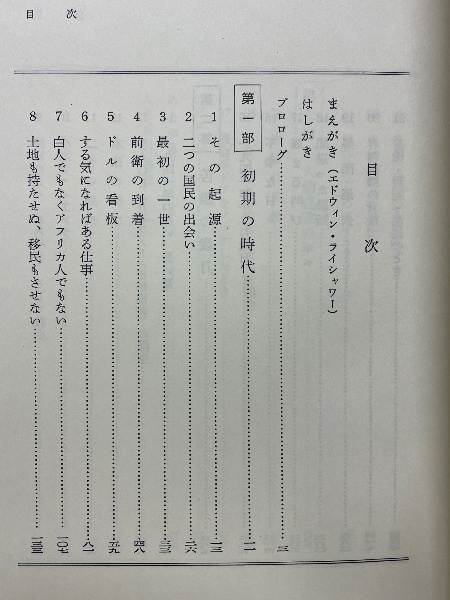 目次
目次
まえがき（エドウィン・ライシャワー）
はしがき
プロローグ…………三
第一部 初期の時代…………一一
1 その起源…………一三
2 二つの国民の出会い…………二六
3 最初の一世…………三三
4 前衛の到着…………四八
5 ドルの看板…………五九
6 する気になればある仕事…………八一
7 白人でもなくアフリカ人でもない…………一〇七
8 土地も持たせぬ、移民もさせない…………一三三